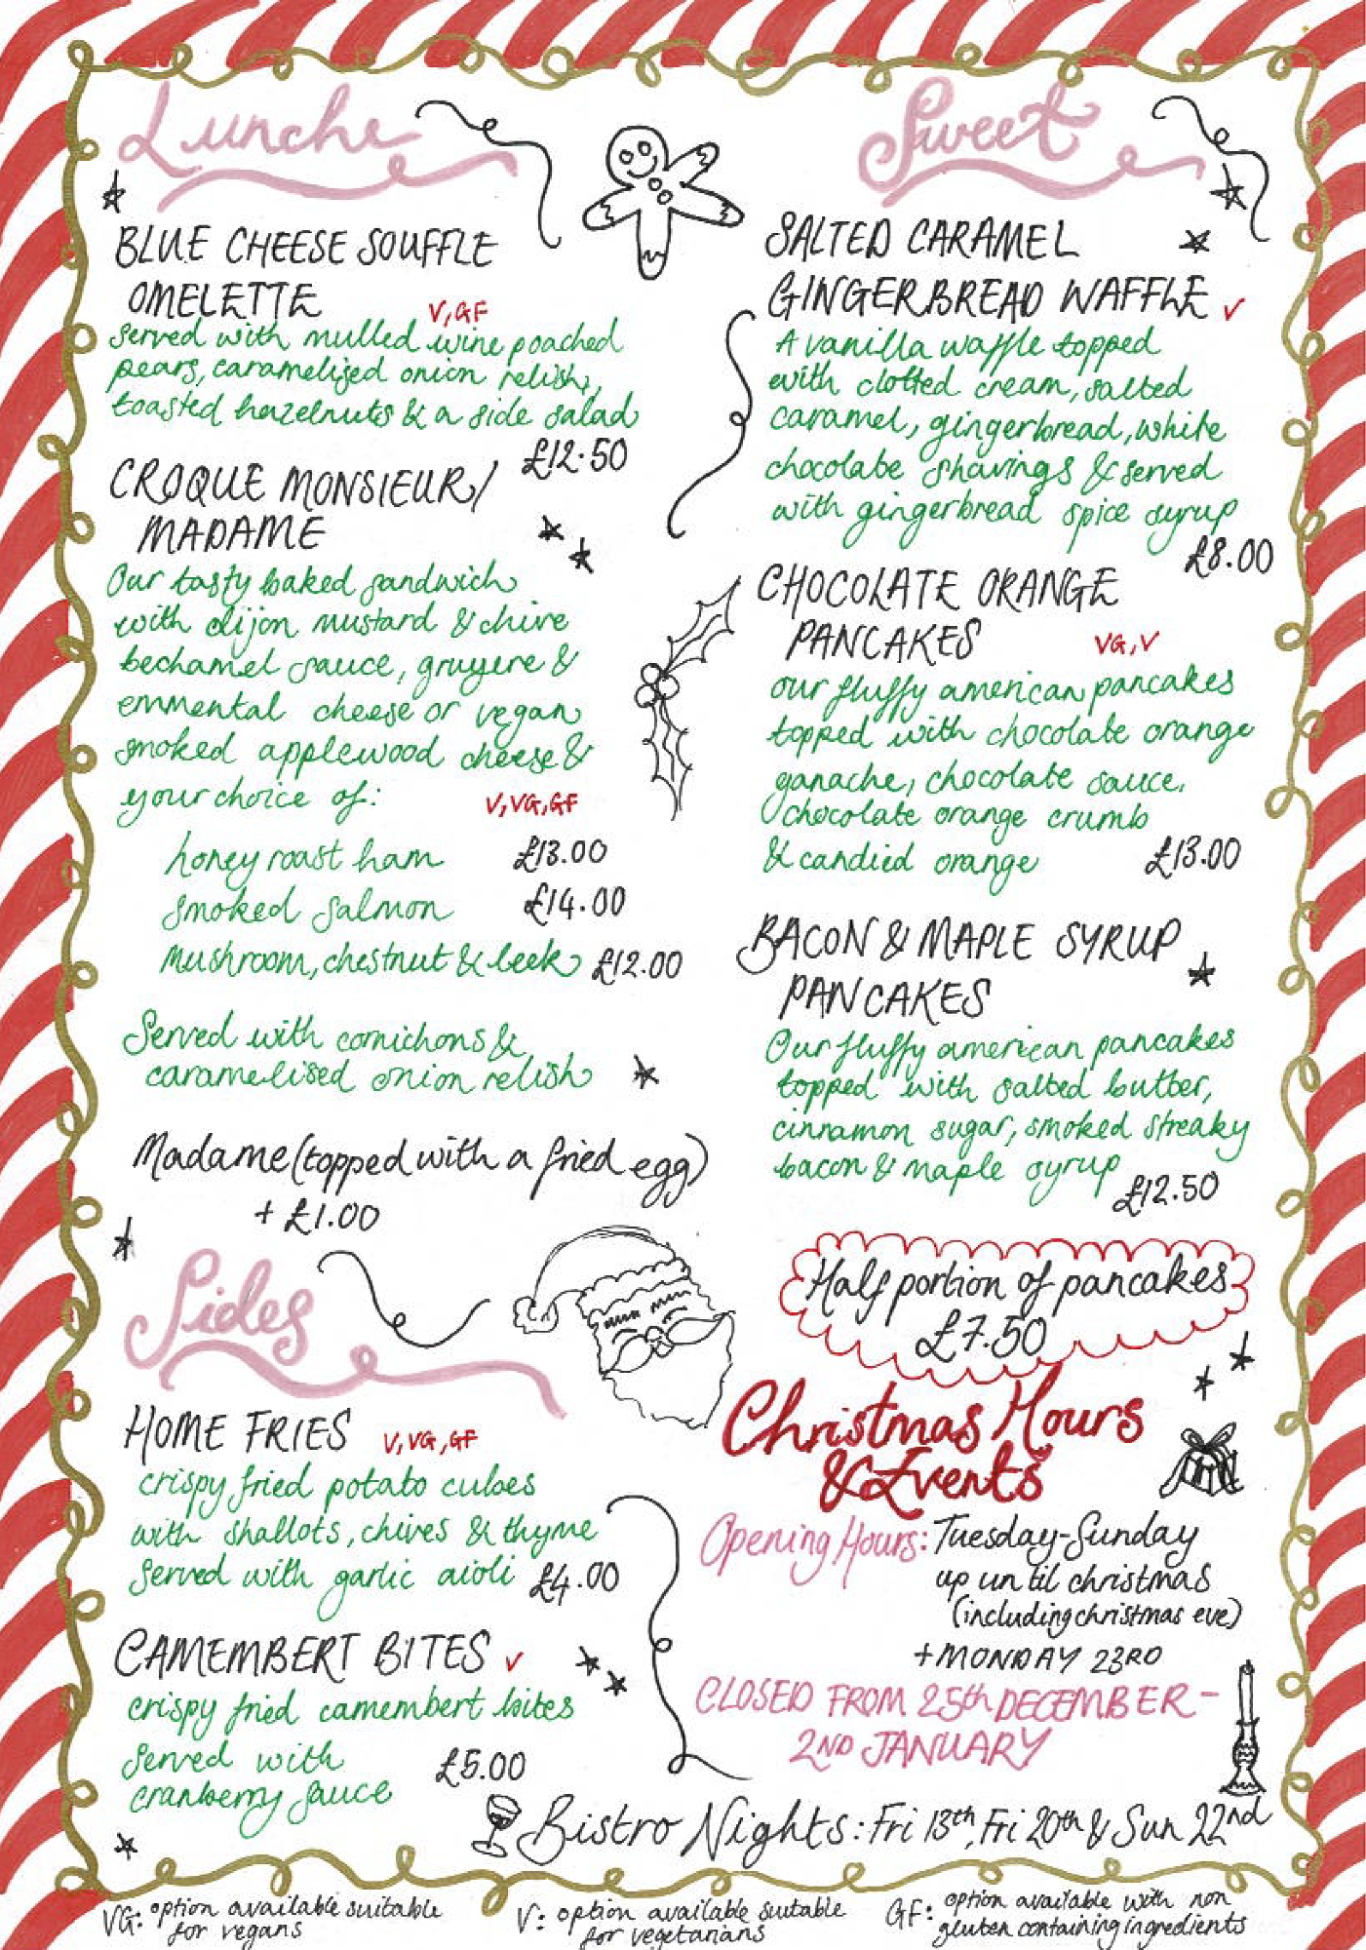 Lunche
BLUE CHEESE SOUFFLE
OMELETTE V, GF
served with mulled wine poached
pears, caramelized onion relish,
toasted hazelnuts & a side salad
£12.50
CROQUE MONSIEUR/
MADAME
Our tasty baked sandwich
with dijon mustard & chive
bechamel sauce, gruyere &
emmental cheese or vegan
smoked applewood cheese &
your choice of: V, VG, GF
honey roast ham £13.00
smoked salmon £14.00
mushroom, chestnut & leek £12.00
Served with cornichons &
caramelised onion relish
Madame (topped with a fried egg)
+ £1.00
Sides
HOME FRIES V, VG, GF
crispy fried potato cubes
with shallots, chives & thyme
Served with garlic aioli £4.00
CAMEMBERT BITES V
crispy fried camembert bites
served with £5.00
cranberry sauce
Sweet
SALTED CARAMEL
GINGERBREAD WAFFLE V
A vanilla waffle topped
with clotted cream, salted
caramel, gingerbread, white
chocolate shavings & served
with gingerbread spice syrup
£8.00
CHOCOLATE ORANGE
PANCAKES VG, V
our fluffy american pancakes
topped with chocolate orange
ganache, chocolate sauce,
chocolate orange crumb
& candied orange £13.00
BACON & MAPLE SYRUP
PANCAKES
Our fluffy american pancakes
topped with salted butter,
cinnamon sugar, smoked streaky
bacon & maple syrup £12.50
Half portion of pancakes
£7.50
Christmas Hours
& Events
Opening Hours: Tuesday-Sunday
up until christmas
(including christmas eve)
+ MONDAY 23RD
CLOSED FROM 25th DECEMBER -
2ND JANUARY
Bistro Nights: Fri 13th, Fri 20th & Sun 22nd
VG: option available suitable
for vegans
V: option available suitable
for vegetarians
GF: option available with non
gluten containing ingredients